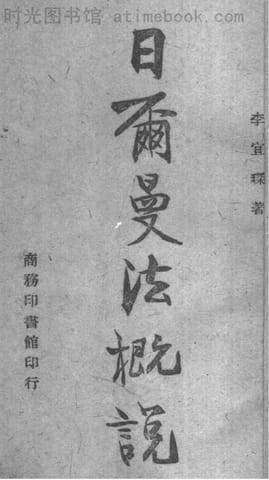 时光图书馆 atimebook.com
李宜琛著
日爾曼法概説
商務印書館印行